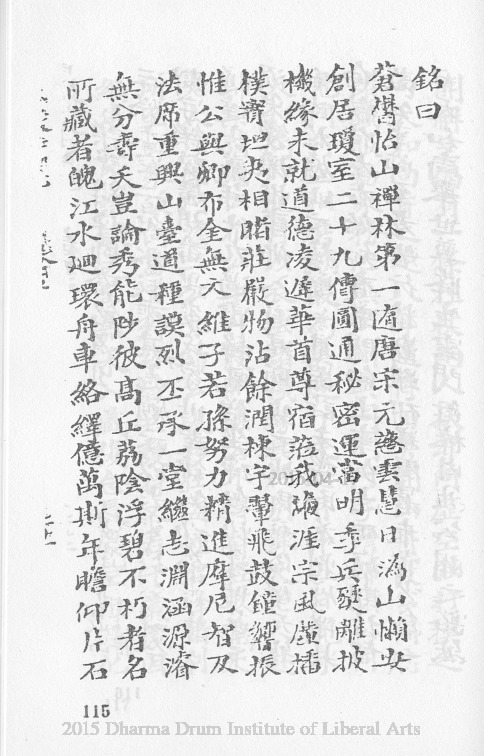 銘曰
蒼欝怡山禪林第一隋唐宋元慈雲慧日溈山懶安
創居瓊室二十九傳圓通秘密運當明季兵燹離披
機緣未就道德凌遲華首尊宿蒞我海涯宗風廣播
樸實坦夷相賭莊嚴物沾餘潤棟宇翬飛鼓鐘響振
惟公與卿布金無文維子若孫努力精進摩尼智及
法席重興山臺道種謨烈丕承一堂繼志淵涵源濬
無分壽夭豈論秀能陟彼高丘荔陰浮碧不朽者名
所藏者魄江水廻環舟車絡繹億萬斯年瞻仰片石
115
2015 Dharma Drum Institute of Liberal Arts